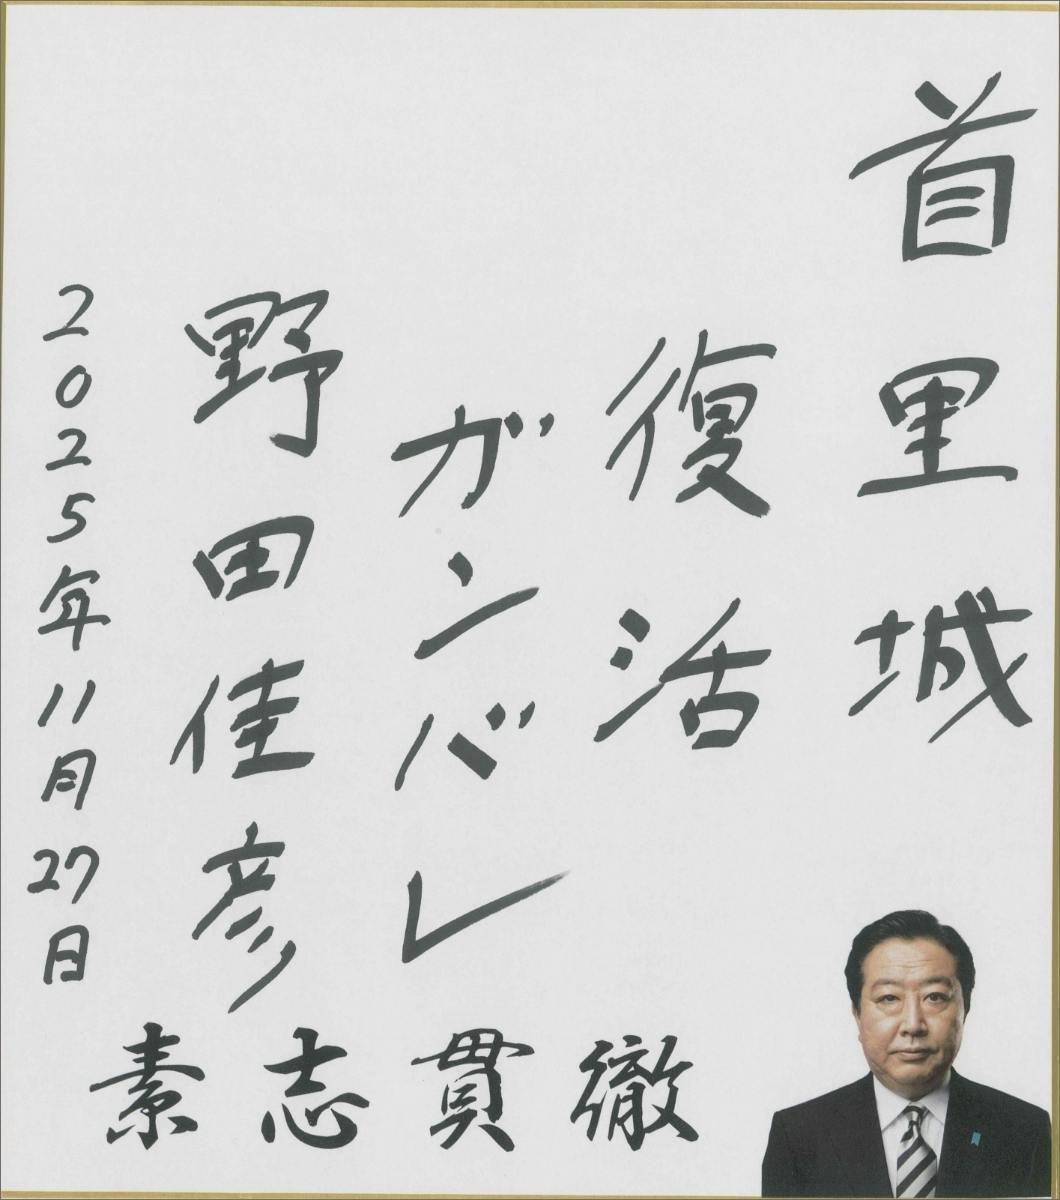 首里城
復活
ガンバレ
野田佳彦
2025年11月27日
素志貫徹